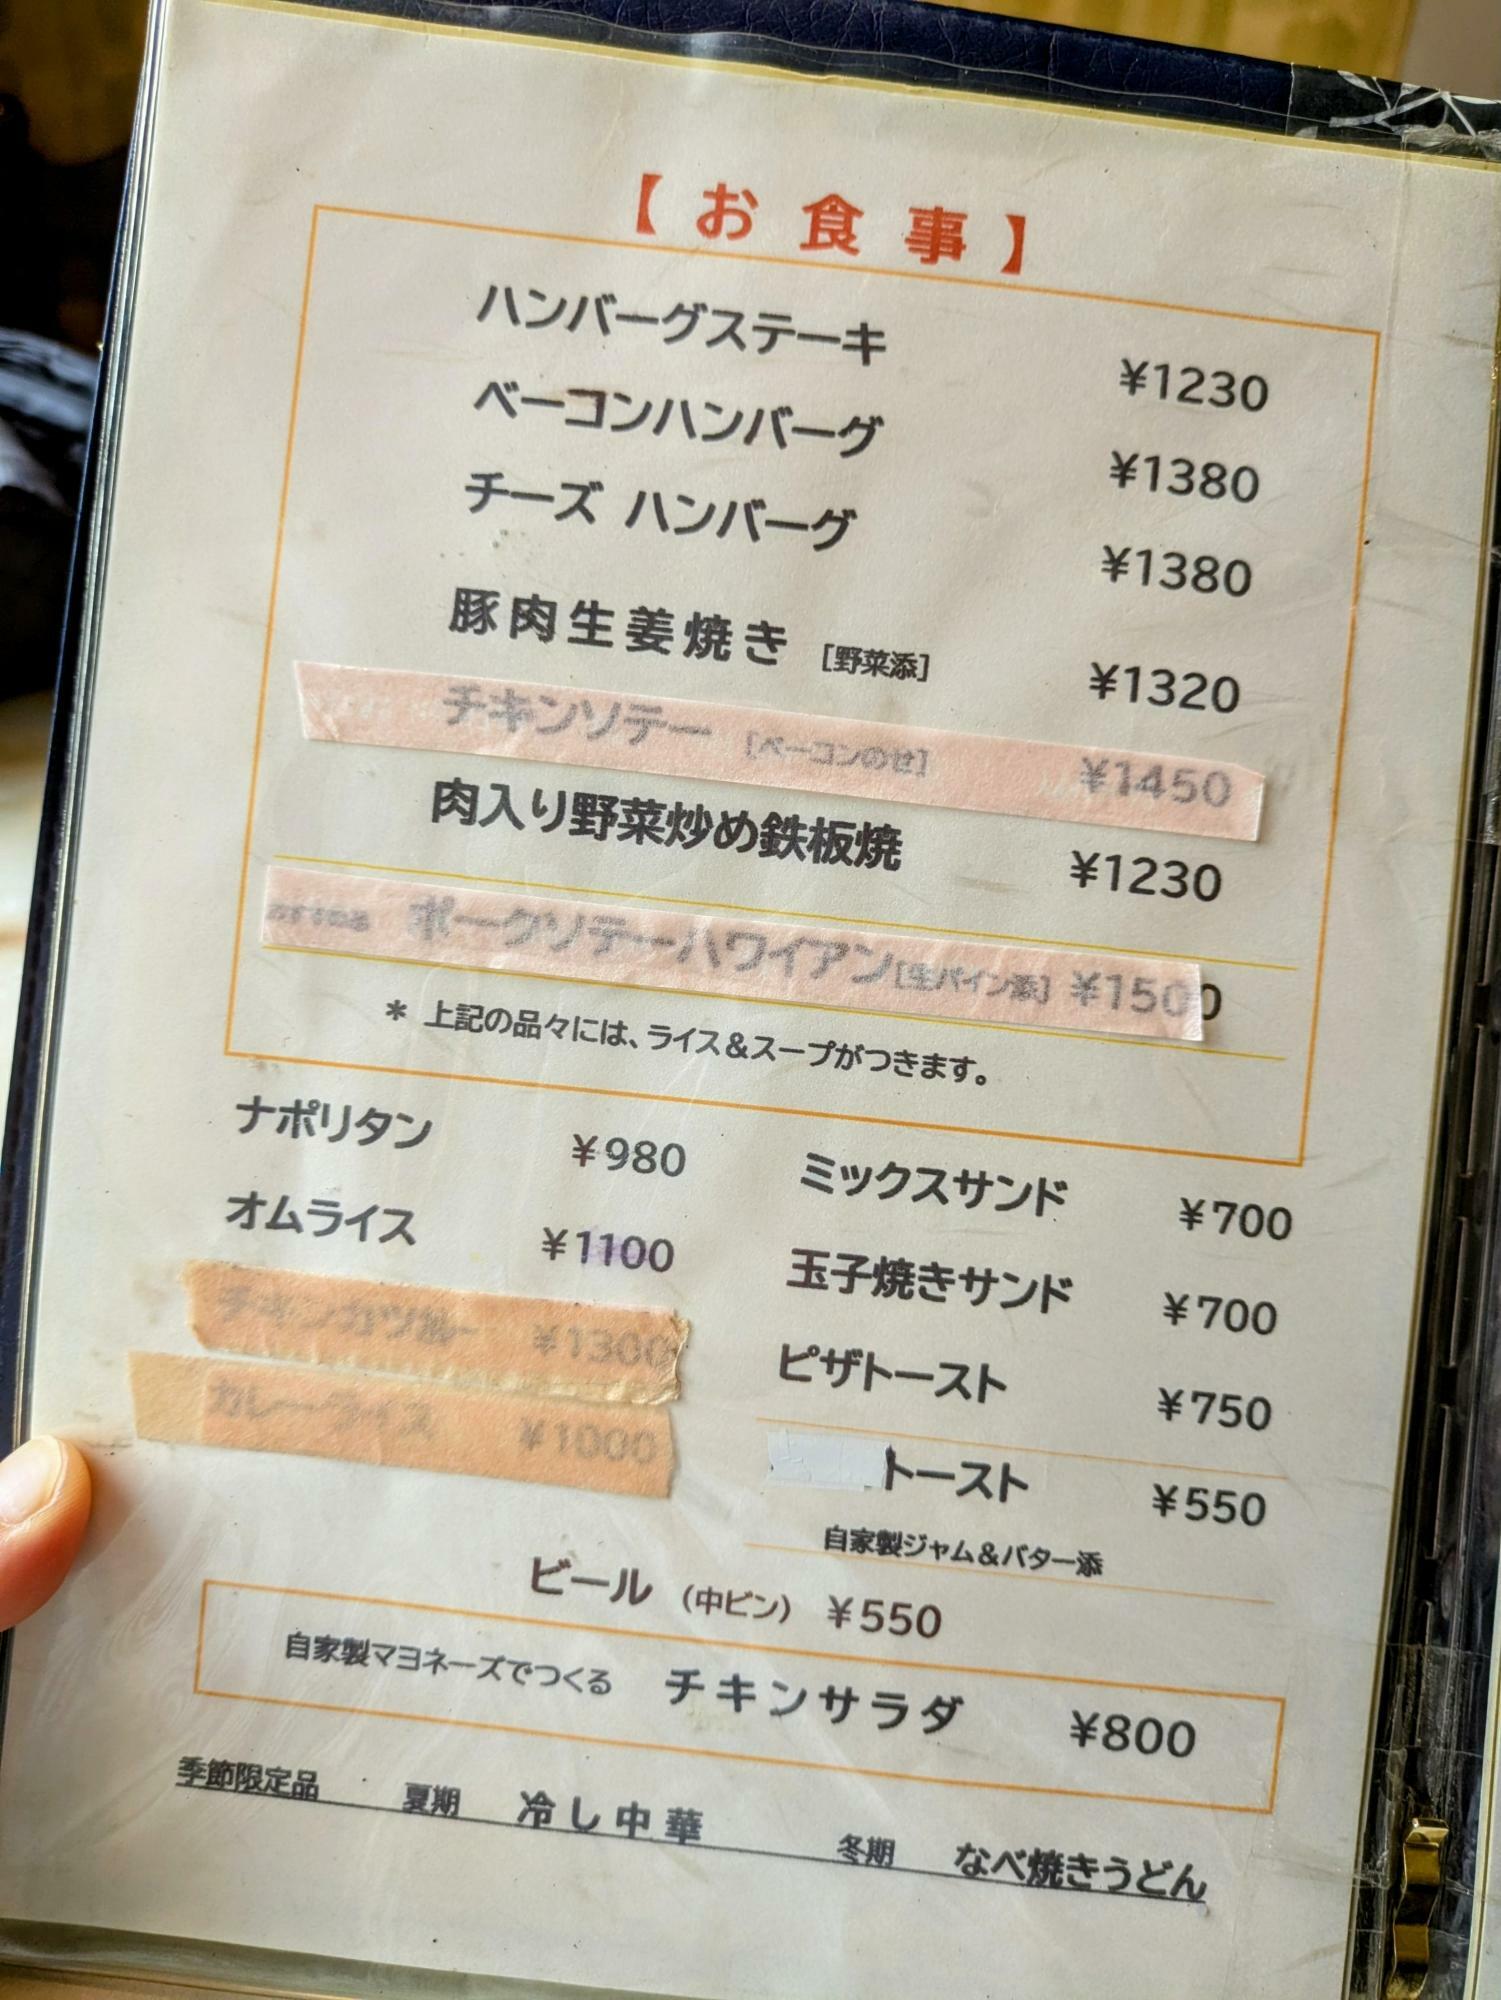 【お食事】
ハンバーグステーキ ¥1230
ベーコンハンバーグ ¥1380
チーズ ハンバーグ ¥1380
豚肉生姜焼き [野菜添] ¥1320
チキンソテー [ベーコンのせ] ¥1450
肉入り野菜炒め鉄板焼 ¥1230
ポークソテーハワイアン[生パイン添] ¥1500
* 上記の品々には、ライス&スープがつきます。
ナポリタン ¥980
オムライス ¥1100
チキンカツカレー ¥1300
カレーライス ¥1000
ミックスサンド ¥700
玉子焼きサンド ¥700
ピザトースト ¥750
トースト ¥550
自家製ジャム&バター添
ビール (中ビン) ¥550
自家製マヨネーズでつくる チキンサラダ ¥800
季節限定品 夏期 冷し中華 冬期 なべ焼きうどん